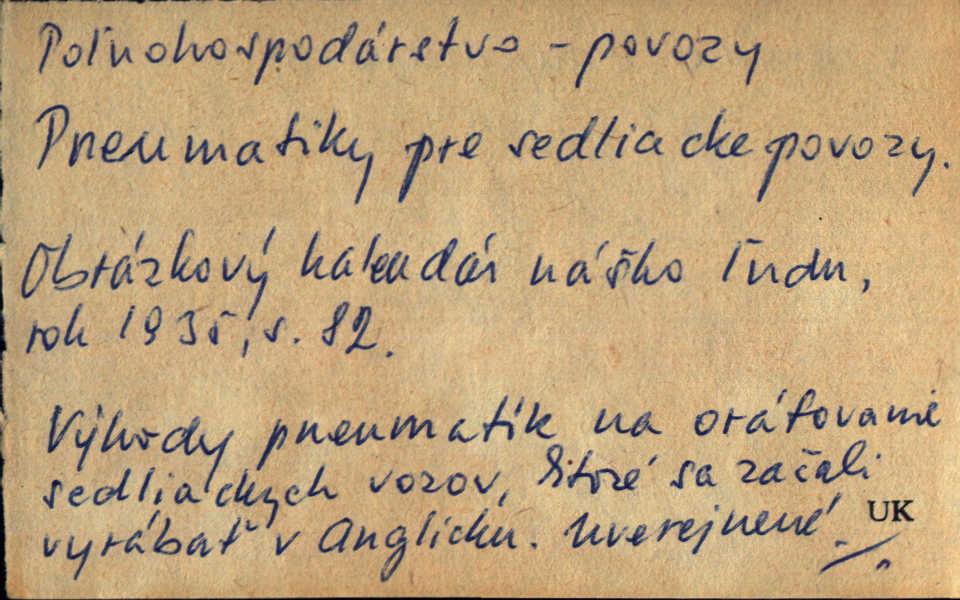 Poľnohospodárstvo - povozy
Pneumatiky pre sedliacke povozy.
Obrázkový kalendár nášho ľudu,
rok 1935, s. 82.
Výhody pneumatík na
sedliackych vozov, ktoré sa začali
vyrábať v Anglicku. Uverejnené.
UK